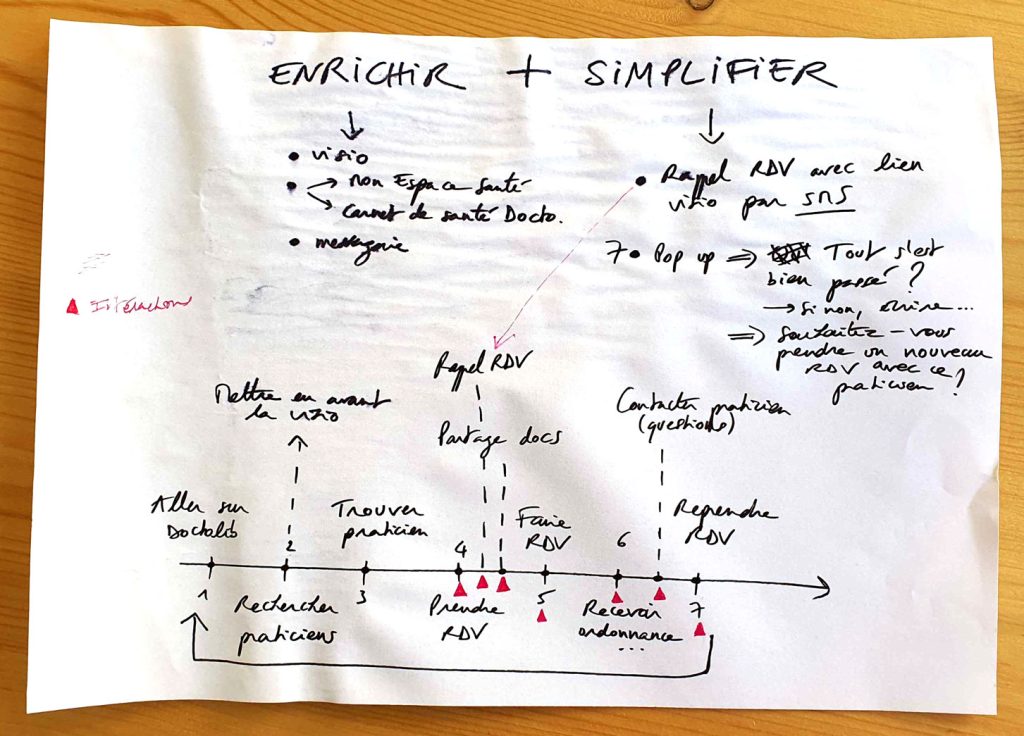 ENRICHIR + SIMPLIFIER
• visio
• → Mon Espace santé
→ Carnet de santé Docto.
• messagerie
• Rappel RDV avec lien
visio par SMS
7 • Pop up ⇒ Tout s'est
bien passé ?
→ Si non, écrire...
⇒ Souhaitez-vous
prendre un nouveau
RDV avec ce
praticien ?
▲ Intéractions
Rappel RDV
Mettre en avant
la visio
Partage docs
Contacter praticien
(questions)
Aller sur
Doctolib
1
2
Rechercher
praticiens
Trouver
praticien
3
4
Prendre
RDV
Faire
RDV
5
6
Recevoir
ordonnance
...
Reprendre
RDV
7